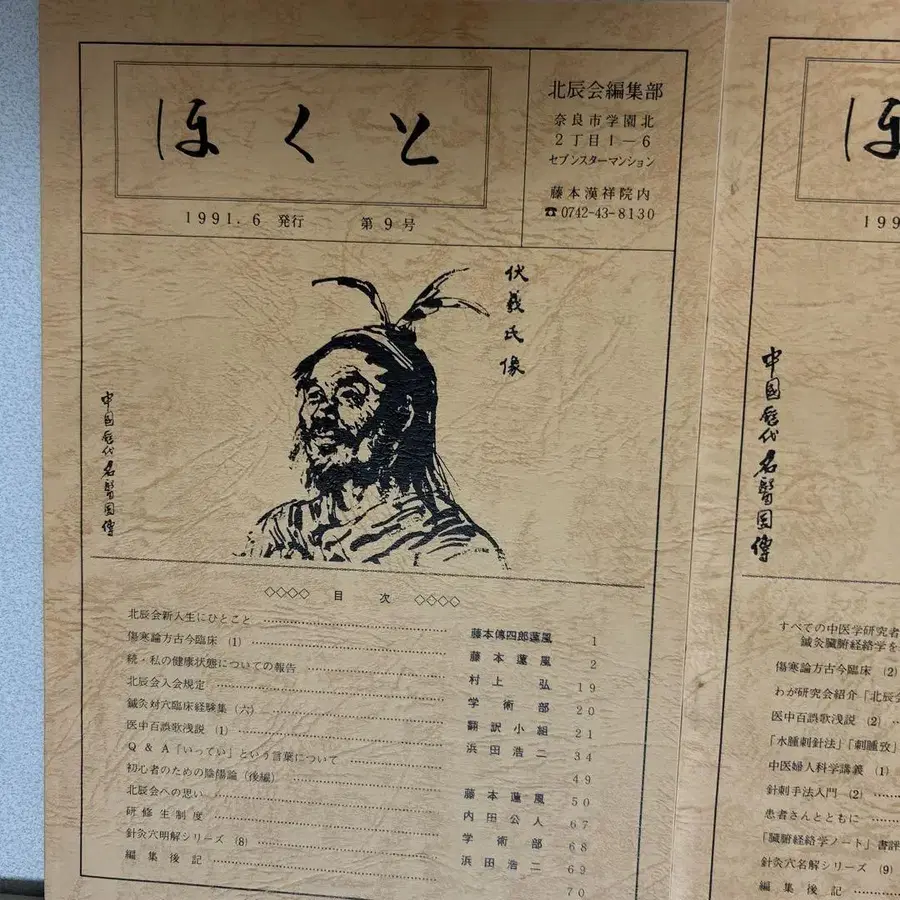 ほくと
1991.6 発行 第9号
北辰会編集部
奈良市学園北
2丁目1―6
セブンスターマンション
藤本漢祥院内
☎0742-43-8130
伏羲氏像
中国歴代名醫図傳
◇◇◇◇ 目次 ◇◇◇◇
北辰会新入生にひとこと 藤本傳四郎蓮風 1
傷寒論方古今臨床 (1) 藤本蓮風 2
続・私の健康状態についての報告 村上弘 19
北辰会入会規定 学術部 20
鍼灸対穴臨床経験集(六) 翻訳小組 21
医中百誤歌浅説 (1) 浜田浩二 34
Q & A「いってい」という言葉について 49
初心者のための陰陽論(後編) 藤本蓮風 50
北辰会への思い 内田公人 67
研修生制度 学術部 68
針灸穴明解シリーズ (8) 浜田浩二 69
編集後記 70
ほ
199
中国歴代名醫図傳
すべての中医学研究者
鍼灸臓腑経絡学を
傷寒論方古今臨床 (2)
わが研究会紹介「北辰会
医中百誤歌浅説 (2)
「水腫刺針法」「刺腫攷」
中医婦人科学講義 (1)
針刺手法入門 (2)
患者さんとともに
「臓腑経絡学ノート」書評
針灸穴名解シリーズ (9)
編集後記